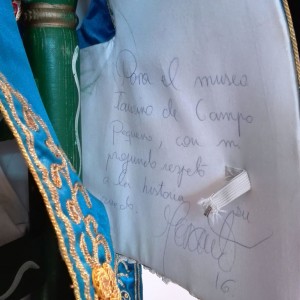 Para el museo
Taurino de Campo
Pequeno, con mi
profundo respeto
a la historia
16